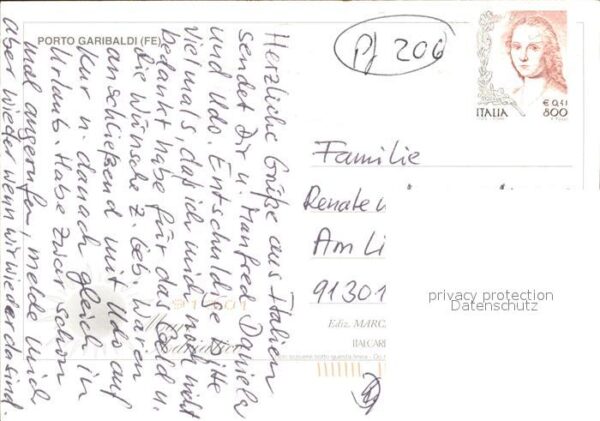 PORTO GARIBALDI (FE)
Herzliche Grüße aus Italien
sendet Dir u. Manfred Daniela
und Udo. Entschuldige bitte
vielmals, daß ich mich noch nicht
bedankt habe für das Geld u.
die Wünsche z. Geb. Waren
anschließend mit Udo auf
Kur u. danach gleich in
Urlaub. Habe zwar schon
mal angerufen, melde mich
aber wieder wenn wir wieder da sind.
PJ 206
ITALIA
€ 0,41
800
Familie
Renate
Am Li
91301
privacy protection
Datenschutz
Mare
Adriatico
Ediz. MARC
ITALCARD